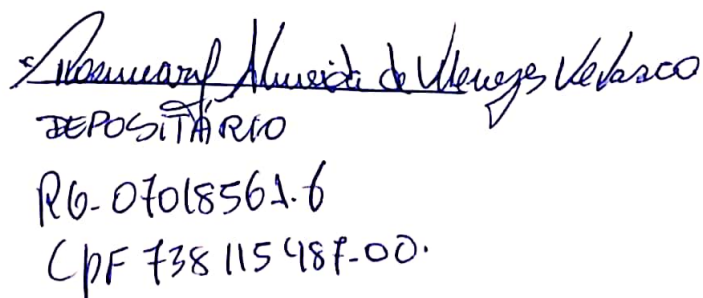 Rosemary Almeida de Menezes Velasco
DEPOSITÁRIO
RG-07018561.6
CPF 738 115 487-00.